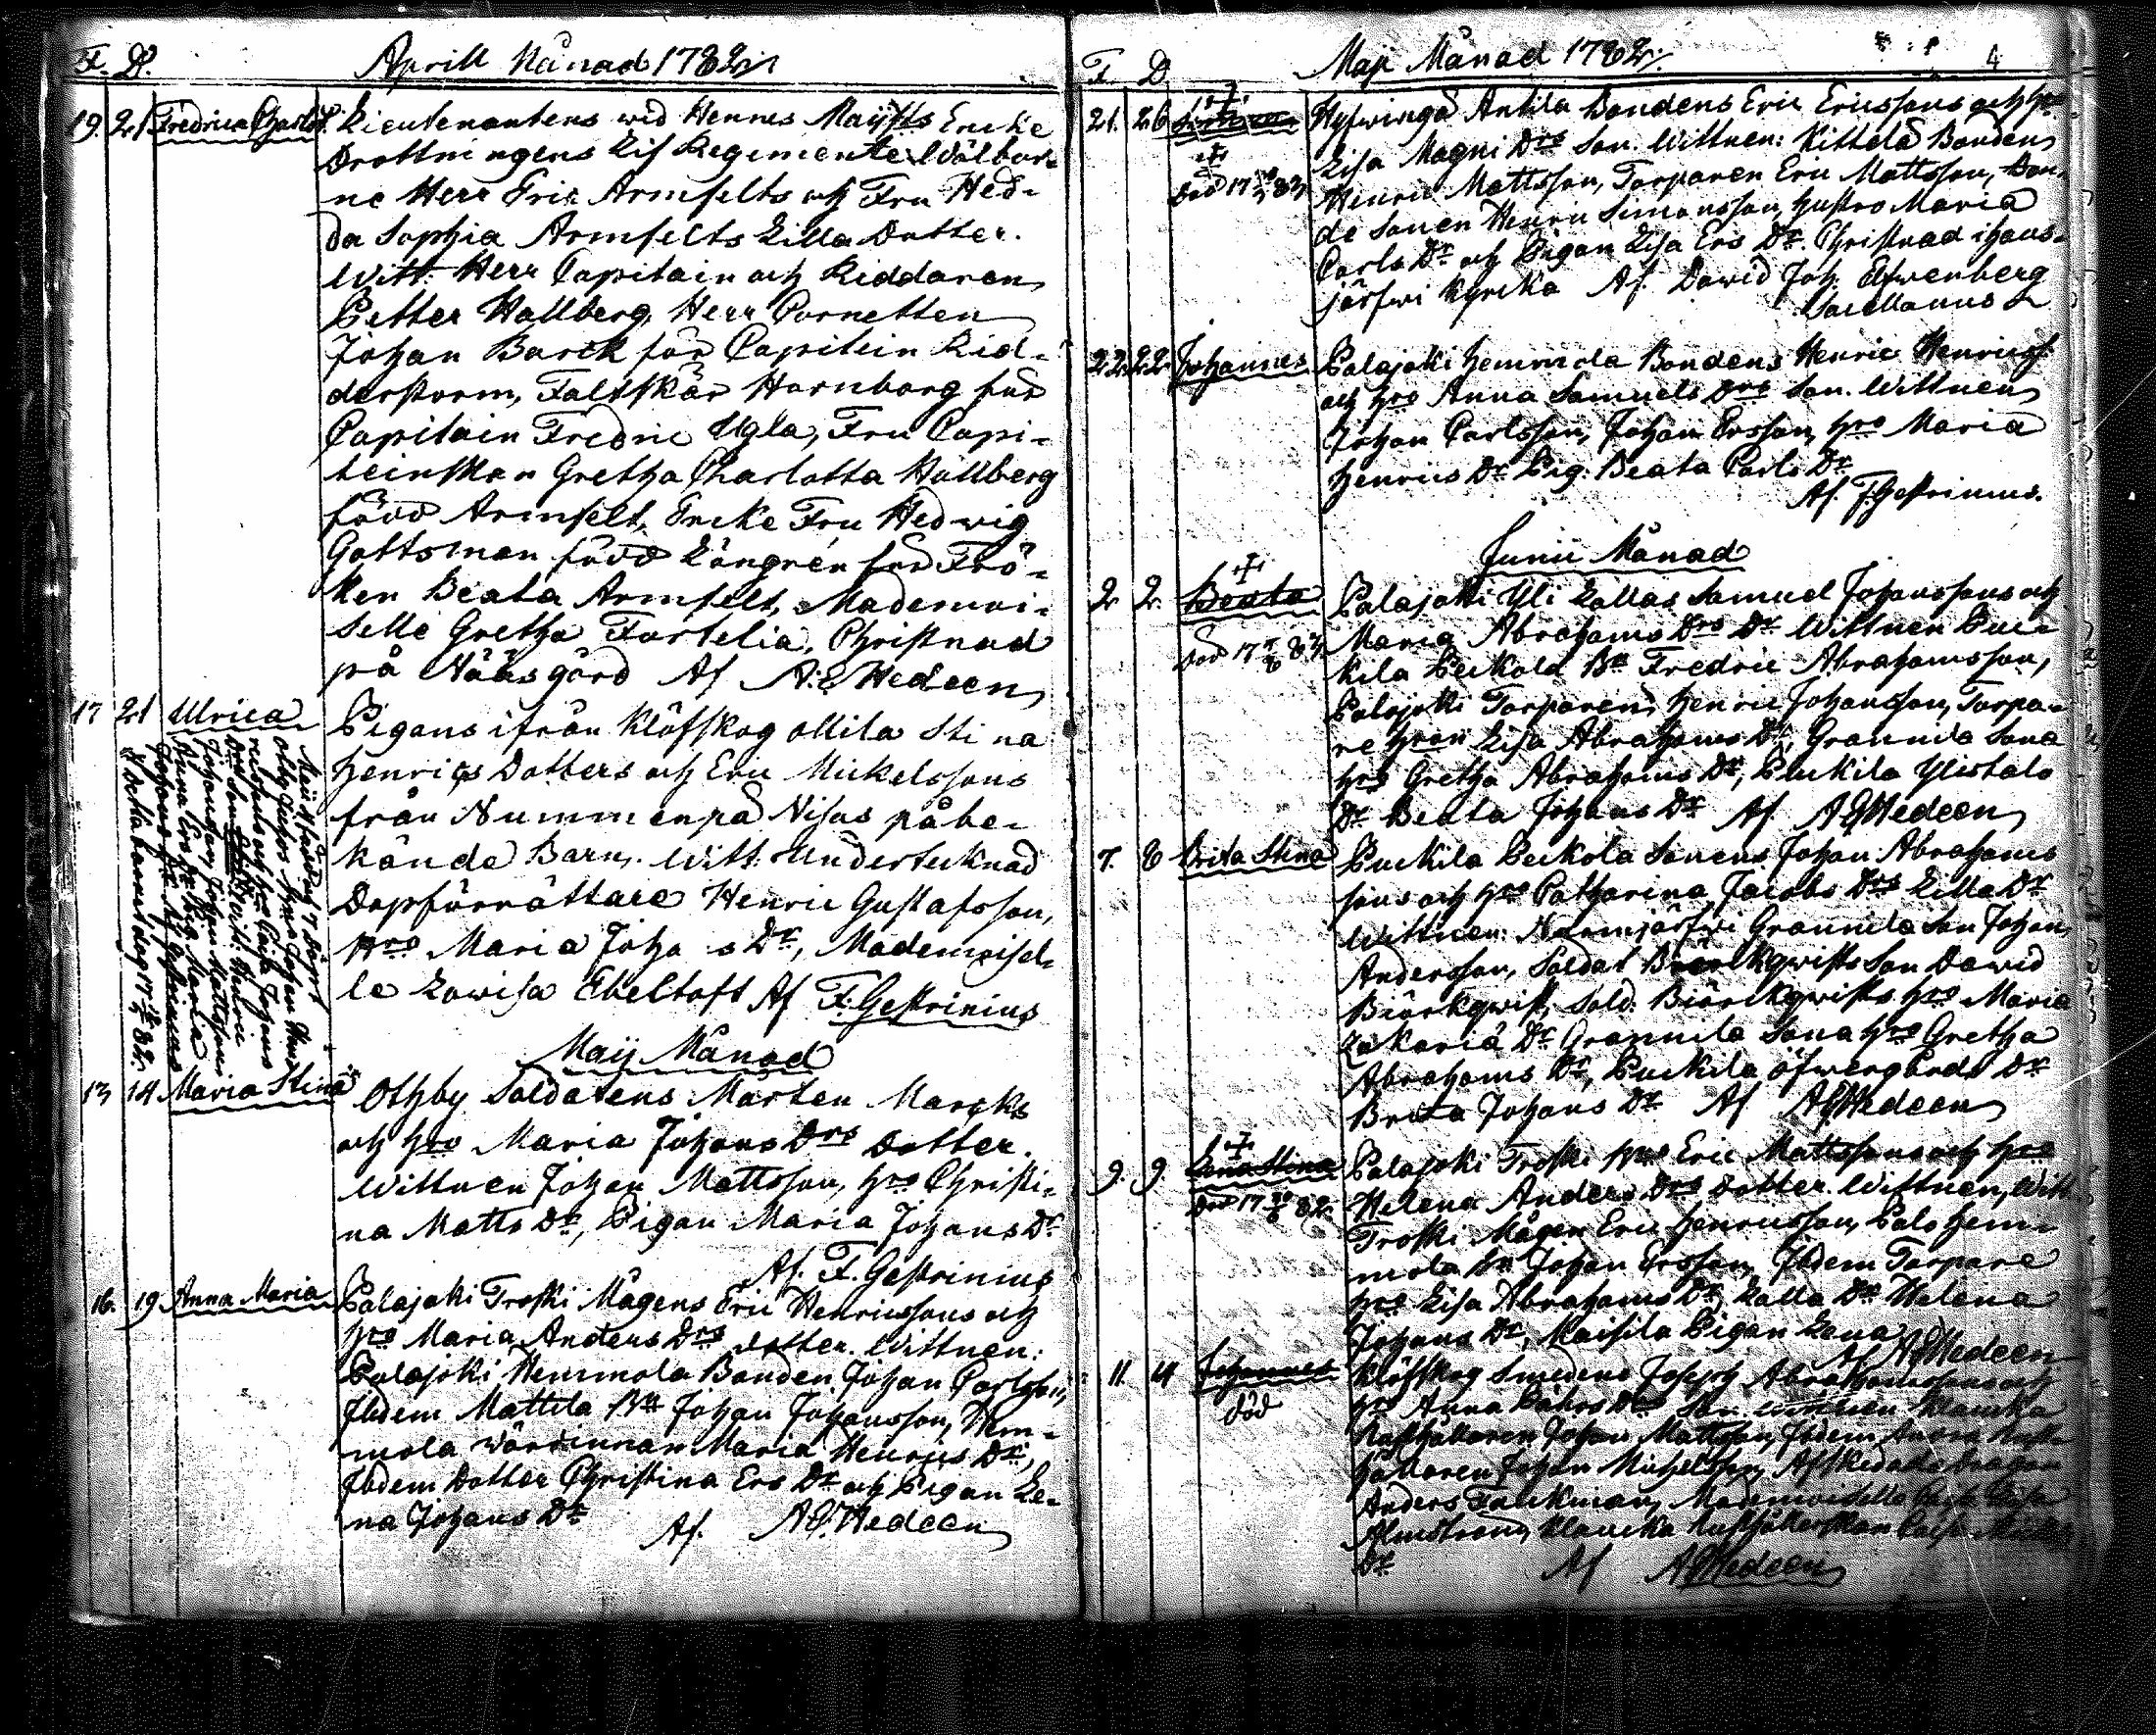 F. D. Aprill Månad 1782
19. 21 Fredrica Charlot. Lieutenantens wid Hennes Maij:tts Encke
Drottningens Lif Regemente Wälbor-
ne Herr Eric Armfelts och Fru Hed-
da Sophia Armfelts Lilla Dotter.
Witt: Herr Capitain och Riddaren
Petter Hallberg, Herr Cornetten
Johan Barck för Capitein Rid-
derstorm, Fältskär Hornborg för
Capitain Fredric Ugla, Fru Capi-
teinskan Gretha Charlotta Hallberg
född Armfelt, Encke Fru Hedwig
Gottsman född Långrén för Frö-
ken Beata Armfelt, Mademoi-
selle Gretha Fortelia, Christnad
på Nääs gård Af A:E Hedeen
17 21 Ulrica Pigans ifrån Klöfskog Ollila Stina
Henrics Dotters och Eric Mickelssons
från Nummenpää Nisus påbe-
kände Barn. Witt. Undertecknad
Dopförrättare Henric Gustafsson,
Hro Maria Joha s Dr, Mademoisel-
le Lowisa Ebeltoft Af F: Gestrinius
Maij Månad
13 14 Maria Stina Othby Soldatens Mårten Marcks
och Hro Maria Johans Drs Dotter.
Wittnen Johan Mattsson, Hro Christi-
na Matts Dr, Pigan Maria Johans Dr
Af. F. Gestrinius
16. 19 Anna Maria Palajoki Troski Mågens Eric Henricssons och
Hro Maria Anders Drs dotter. Wittnen:
Palajoki Hemmola Bonden Johan Carlsson,
Ibdem Mattila Bn Johan Johansson, Hem-
mola wärdinnan Maria Henrics Dr,
Ibdem Dotter Christina Ers Dr och Pigan Le-
na Johans Dr Af. A.E. Hedeen
T. D. Maji Månad 1782. 4
21. 26 Hyfwinge Antila Bondens Eric Ericssons och Hro
död 17 82 Lisa Magni Drs Son. Wittnen: Kittelä Bonden
Henric Mattsson, Torparen Eric Mattsson, Bon-
de Sonen Henric Simonsson, Hustro Maria
Carls Dr och Pigan Lisa Ers Dr. Christnad i Haus-
järfwi Kyrcka Af. Dawid Joh. Elfwenberg
Sacellanus
22. 22. Johannes Palajoki Hemmola Bondens Henric Henricss.
och Hro Anna Samuels Drs Son. Wittnen
Johan Carlsson, Johan Ersson, Hro Maria
Henrics Dr Pig. Beata Carls Dr
Af. F. Gestrinius.
Junii Månad
2. 2. Beata Palajoki Yli Lallas Samuel Johanssons och
Maria Abrahams Drs Dr Wittnen Puc-
kila Peckola Bn Fredric Abrahamsson,
Palajoki Torparen Henric Johansson, Torpa-
re Hron Lisa Abrahams Dr, Grannila Sona
Hro Gretha Abrahams Dr, Puckila Ylistalo
Dr Beata Johans Dr Af AE Hedeen
7. 8 Brita Stina Puckila Peckola Sonens Johan Abrahams
sons och Hro Catharina Jacobs Drs Lilla Dr
Wittnen: Nurmijärfvi Grannila Son Johan
Andersson, Soldat Biörckqwists Son Dawid
Biörkqwist, Sold. Biörckqwists Hro Maria
Zakariæ Dr Grannila Sona Hro Gretha
Abrahams Dr, Puckila Öfwergårds Dr
Brita Johans Dr Af AE Hedeen
9. 9. Lena Stina Palajoki Troski Eric Mattssons och Hro
Helena Anders Drs Dotter. Wittnen,
Troski Mågen Eric Henricsson, Palo Hem-
mola Bn Johan Ersson, Ibdem Torpare
Hro Lisa Abrahams Dr, Lalla Dr Helena
Johans Dr, Maisila Pigan Lena
Af AE Hedeen
11. 14 Johannes Klöfskog Smedens Joseph Abrahamssons och
död Hro Anna Son Wittnen Klaucka
Rusthållaren Johan Mattsson, Ibdem Andra Rust-
hållaren Johan Michelsson, Afskedade Dragon
Anders Falckman, Mademoiselle Lisa
Almstrand, Klaucka Rusthållerskan
Dr Af AE Hedeen